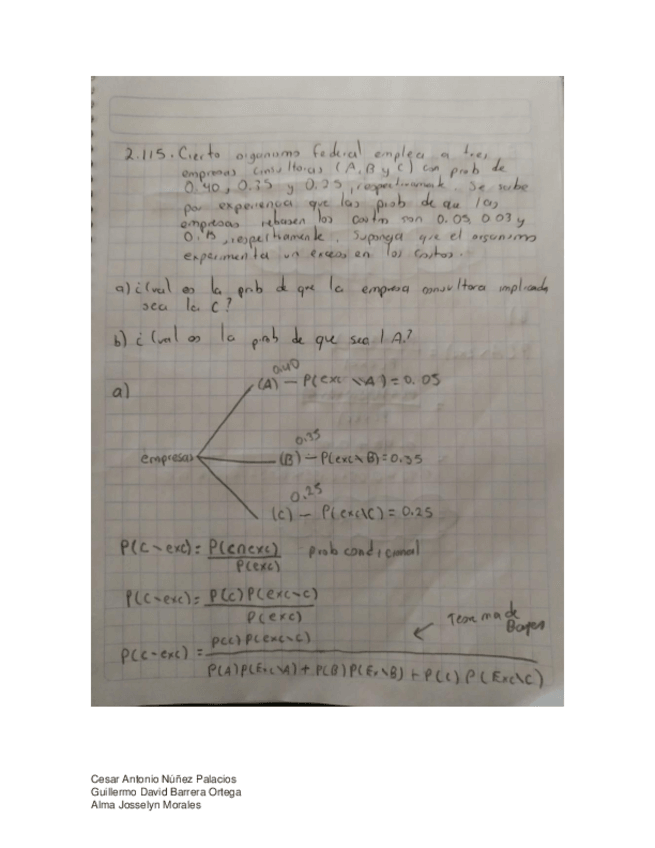 2.115. Cierto organismo federal emplea a tres
empresas consultoras (A, B y C) con prob de
0.40, 0.35 y 0.25, respectivamente. Se sabe
por experiencia que las prob de que las
empresas rebasen los costos son 0.05, 0.03 y
respectivamente. Suponga que el organismo
experimenta un exceso en los costos.
a) ¿Cual es la prob de que la empresa consultora implicada
sea la C?
b) ¿Cual es la prob de que sea l A?
a)
0.40
(A) — P(exc \ A) = 0.05
0.35
empresas (B) — P(exc \ B) = 0.35
0.25
(C) — P(exc \ C) = 0.25
P(C ~ exc) = P(C∩exc) prob condicional
P(exc)
P(C ~ exc) = P(C) P(exc ~ C)
P(exc)
Teorema de
Bayes
P(C ~ exc) = P(C) P(exc ~ C)
P(A)P(Exc\A) + P(B)P(Ex\B) + P(C) P(Exc\C)
Cesar Antonio Núñez Palacios
Guillermo David Barrera Ortega
Alma Josselyn Morales